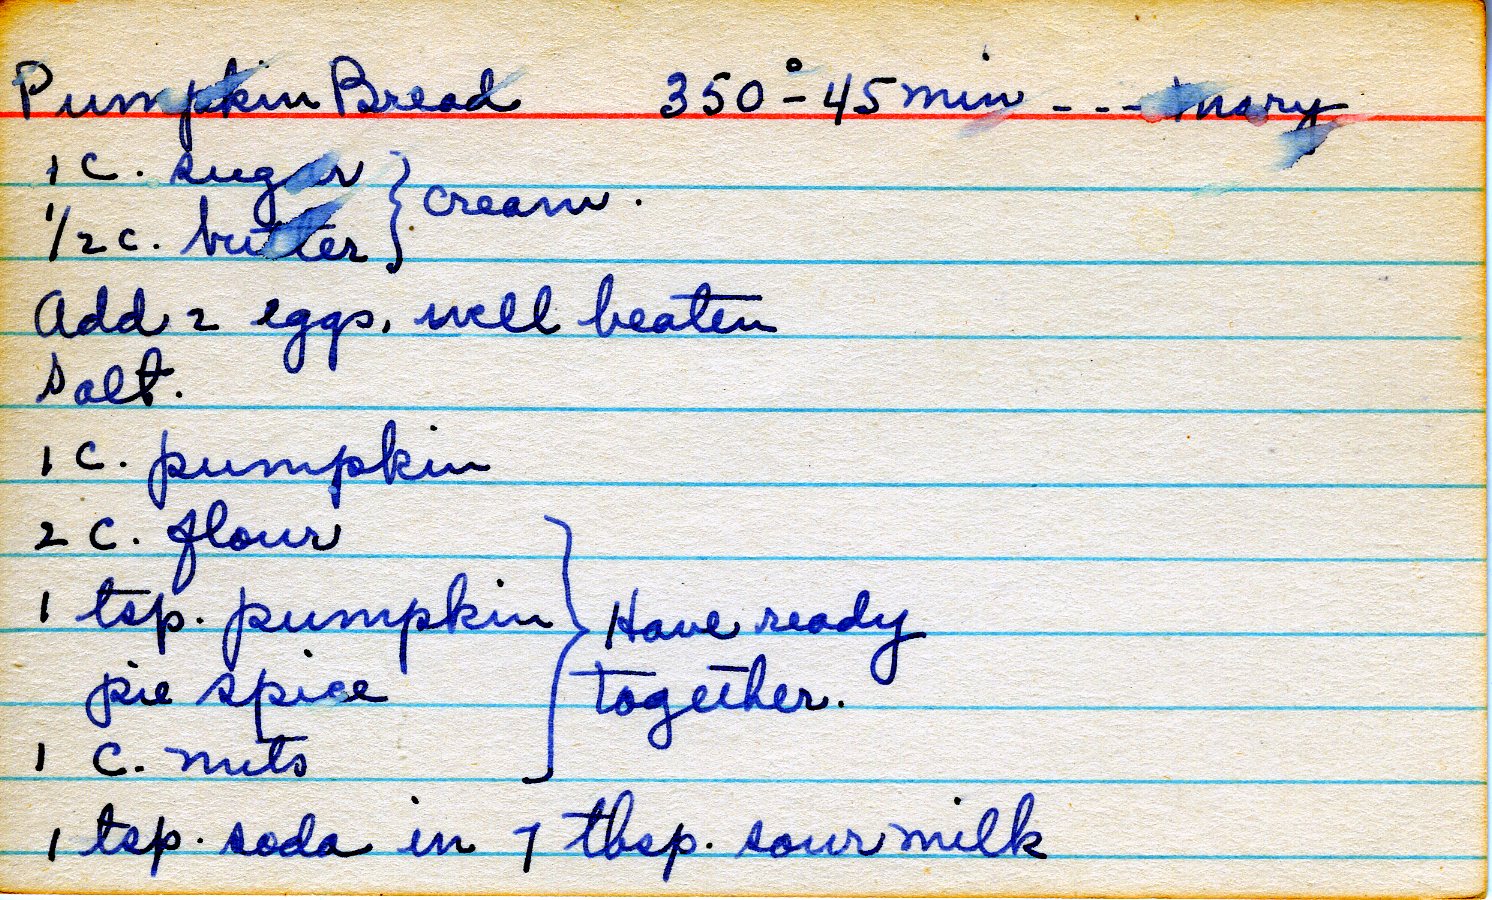 Pumpkin Bread 350° - 45 min --- Mary
1 C. sugar
1/2 c. butter } cream.
Add 2 eggs, well beaten
Salt.
1 C. pumpkin
2 C. flour
1 tsp. pumpkin } Have ready
pie spice together.
1 C. nuts
1 tsp. soda in 7 tbsp. sour milk